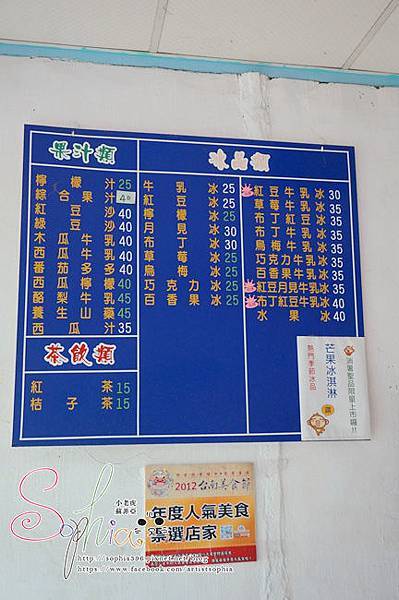 果汁類
檸檬汁25
綜合果汁
紅豆沙40
綠豆沙40
木瓜牛乳40
西瓜牛乳40
番茄多多40
西瓜檸檬40
酪梨牛乳45
養生山藥45
西瓜汁35
茶飲類
紅茶15
桔子茶15
冰品類
牛乳冰25
紅豆冰25
檸檬冰25
月見冰30
布丁冰30
草莓冰25
烏梅冰25
巧克力冰25
百香果冰25
紅豆牛乳冰30
草莓牛乳冰35
布丁牛乳冰35
布丁紅豆冰35
烏梅牛乳冰35
巧克力牛乳冰35
百香果牛乳冰35
紅豆月見牛乳冰35
布丁紅豆牛乳冰40
水果冰40
消暑聖品限量上市囉!!
芒果冰淇淋
熱門季節冰品
2012台南美食節
年度人氣美食
票選店家
Sophia
小老虎
蘇菲亞
https://www.facebook.com/artistsophia